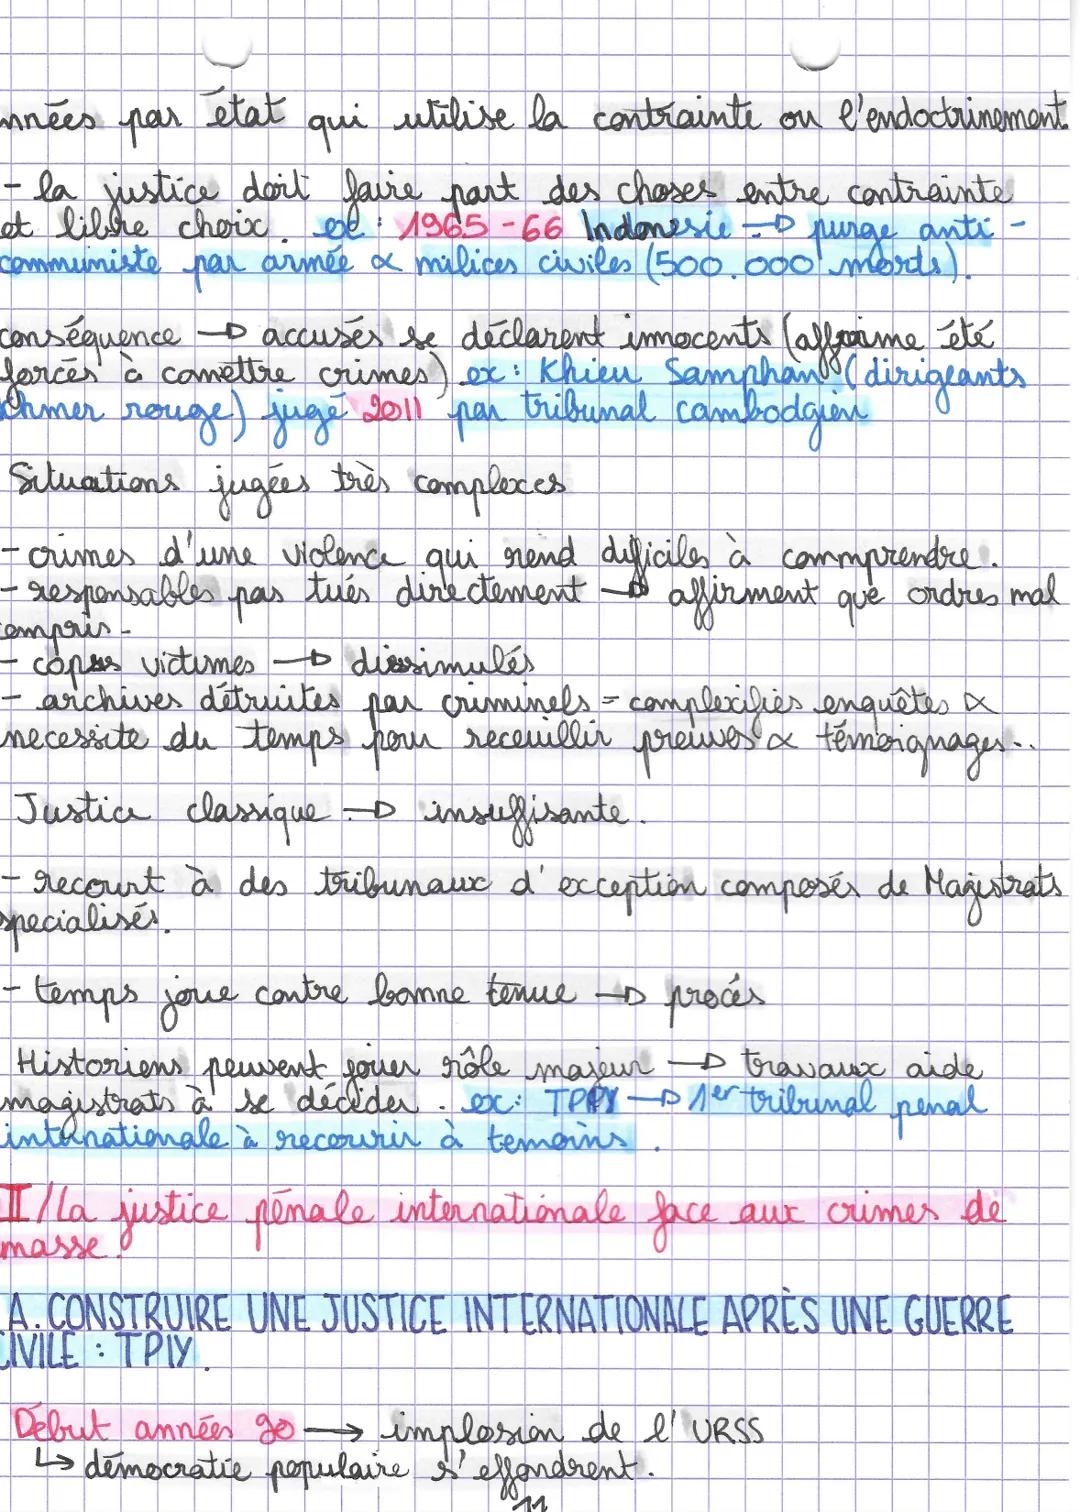 nnées par état qui utilise la contrainte ou l'endoctrinement.
- la justice doit faire part des choses entre contrainte
et libre choix. ex : 1965-66 Indonésie → purge anti-
communiste par armée & milices civiles (500.000 morts).
conséquence → accusés se déclarent innocents (affirme été
forcés à comettre crimes) ex : Khieu Samphan (dirigeants
khmer rouge) jugé 2011 par tribunal cambodgien
Situations jugées très complexes
- crimes d'une violence qui rend difficiles à commprendre.
- responsables pas tués directement → affirment que ordres mal
compris.
- corps victimes → dissimulés
- archives détruites par criminels = complexifiés enquêtes &
necessite du temps pour receuillir preuves & témoignages..
Justice classique → insuffisante.
- recourt à des tribunaux d'exception composés de Magistrats
specialisés.
- temps joue contre bonne tenue → procés
Historiens peuvent jouer rôle majeur → travaux aide
magistrats à se décider. ex: TPIY → 1er tribunal pénal
internationale à recourir à temoins.
II/La justice pénale internationale face aux crimes de
masse.
A. CONSTRUIRE UNE JUSTICE INTERNATIONALE APRÈS UNE GUERRE
CIVILE : TPIY.
Début années 90 → implosion de l'URSS
↳ démocratie populaire s'effondrent.
11